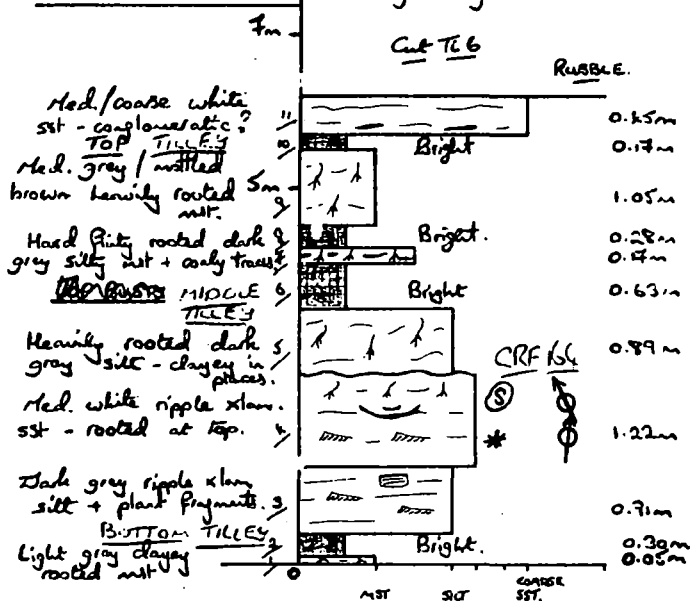 7m
Cut TL6
RUBBLE.
Med./coarse white
sst - conglomeratic? 11 0.45m
TOP TILLEY
10 Bright 0.17m
Med. grey / mottled
brown heavily rooted 5m 1.05m
mst. 9
Hard flinty rooted dark 8 Bright. 0.28m
grey silty mst + coaly traces. 7 0.17m
MIDDLE 6 Bright 0.63m
TILLEY
Heavily rooted dark 5 0.89m
grey silt - clayey in
places.
CRF 164
Med. white ripple xlam. S
sst - rooted at top. 4 * 1.22m
Dark grey ripple xlam
silt + plant fragments. 3 0.71m
BOTTOM TILLEY
2 Bright. 0.30m
Light grey clayey 1 0.05m
rooted mst
0
MST SILT COARSE
SST.